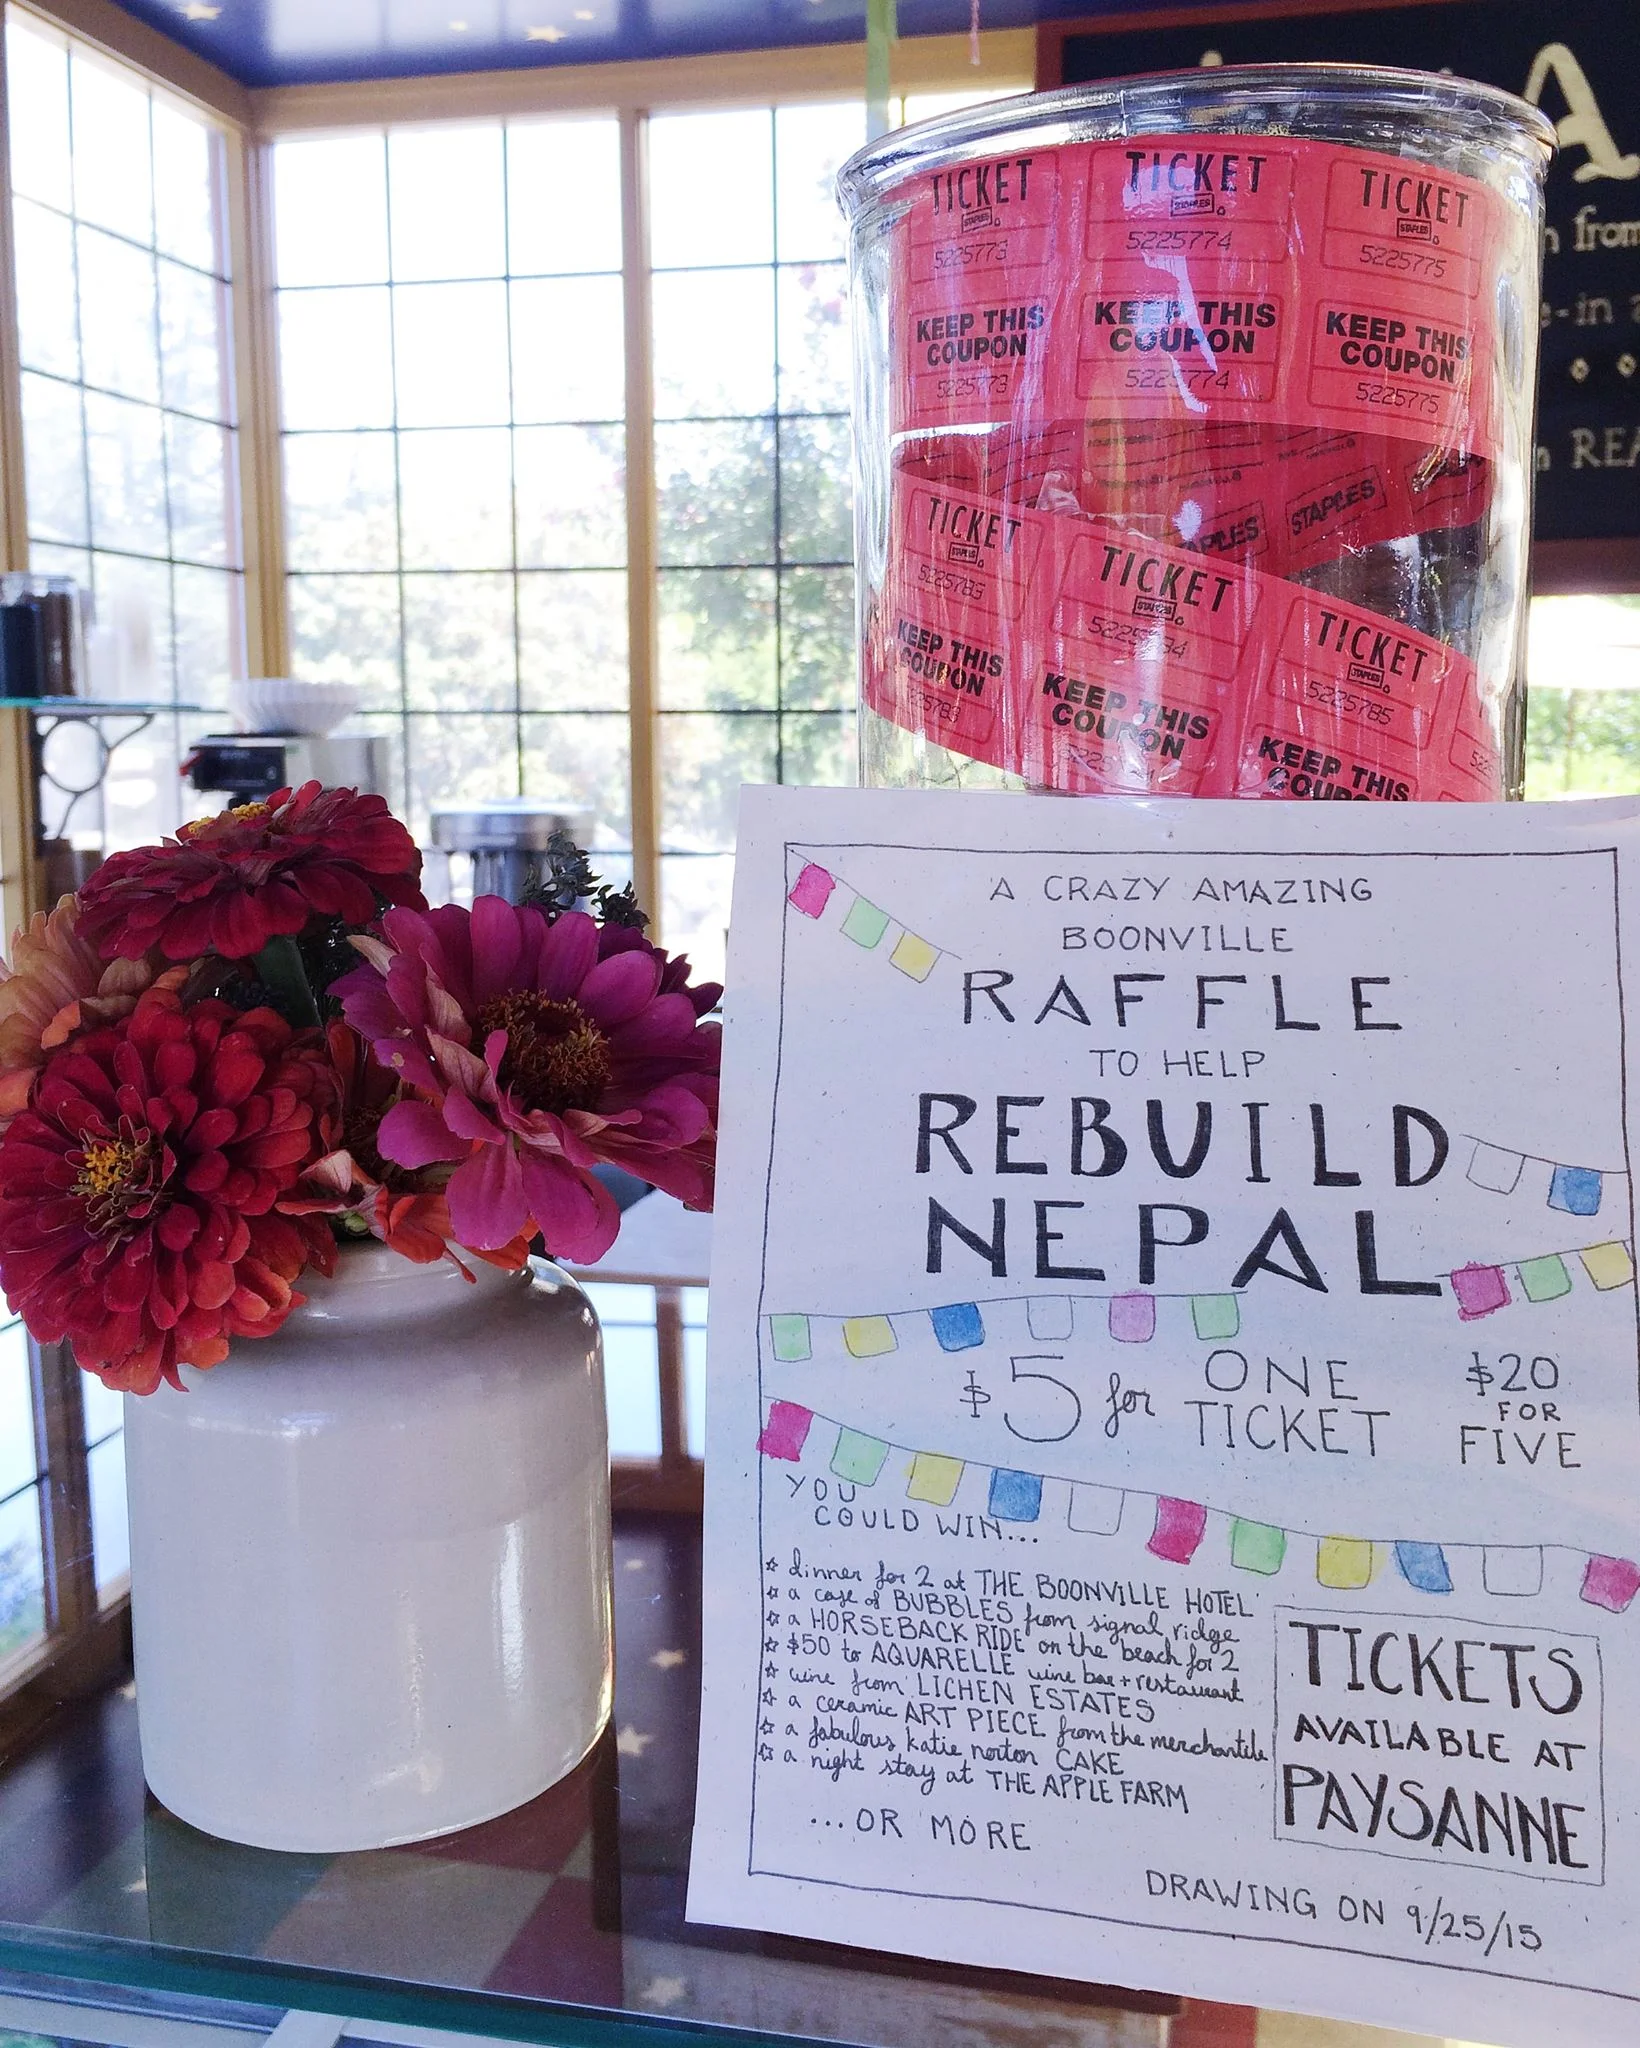 A
n from
e-in a
n REA
TICKET
STAPLES
5225773
KEEP THIS
COUPON
5225773
TICKET
STAPLES
5225774
KEEP THIS
COUPON
5225774
TICKET
STAPLES
5225775
KEEP THIS
COUPON
5225775
STAPLES
STAPLES
TICKET
STAPLES
5225783
KEEP THIS
COUPON
5225783
TICKET
STAPLES
KEEP THIS
COUPON
TICKET
STAPLES
5225785
KEEP THIS
COUPON
A CRAZY AMAZING
BOONVILLE
RAFFLE
TO HELP
REBUILD
NEPAL
$5 for ONE TICKET
$20
FOR
FIVE
YOU
COULD WIN...
☆ dinner for 2 at THE BOONVILLE HOTEL
☆ a case of BUBBLES from signal ridge
☆ a HORSEBACK RIDE on the beach for 2
☆ $50 to AQUARELLE wine bar + restaurant
☆ wine from LICHEN ESTATES
☆ a ceramic ART PIECE from the merchantile
☆ a fabulous katie norton CAKE
☆ a night stay at THE APPLE FARM
...OR MORE
TICKETS
AVAILABLE AT
PAYSANNE
DRAWING ON 9/25/15